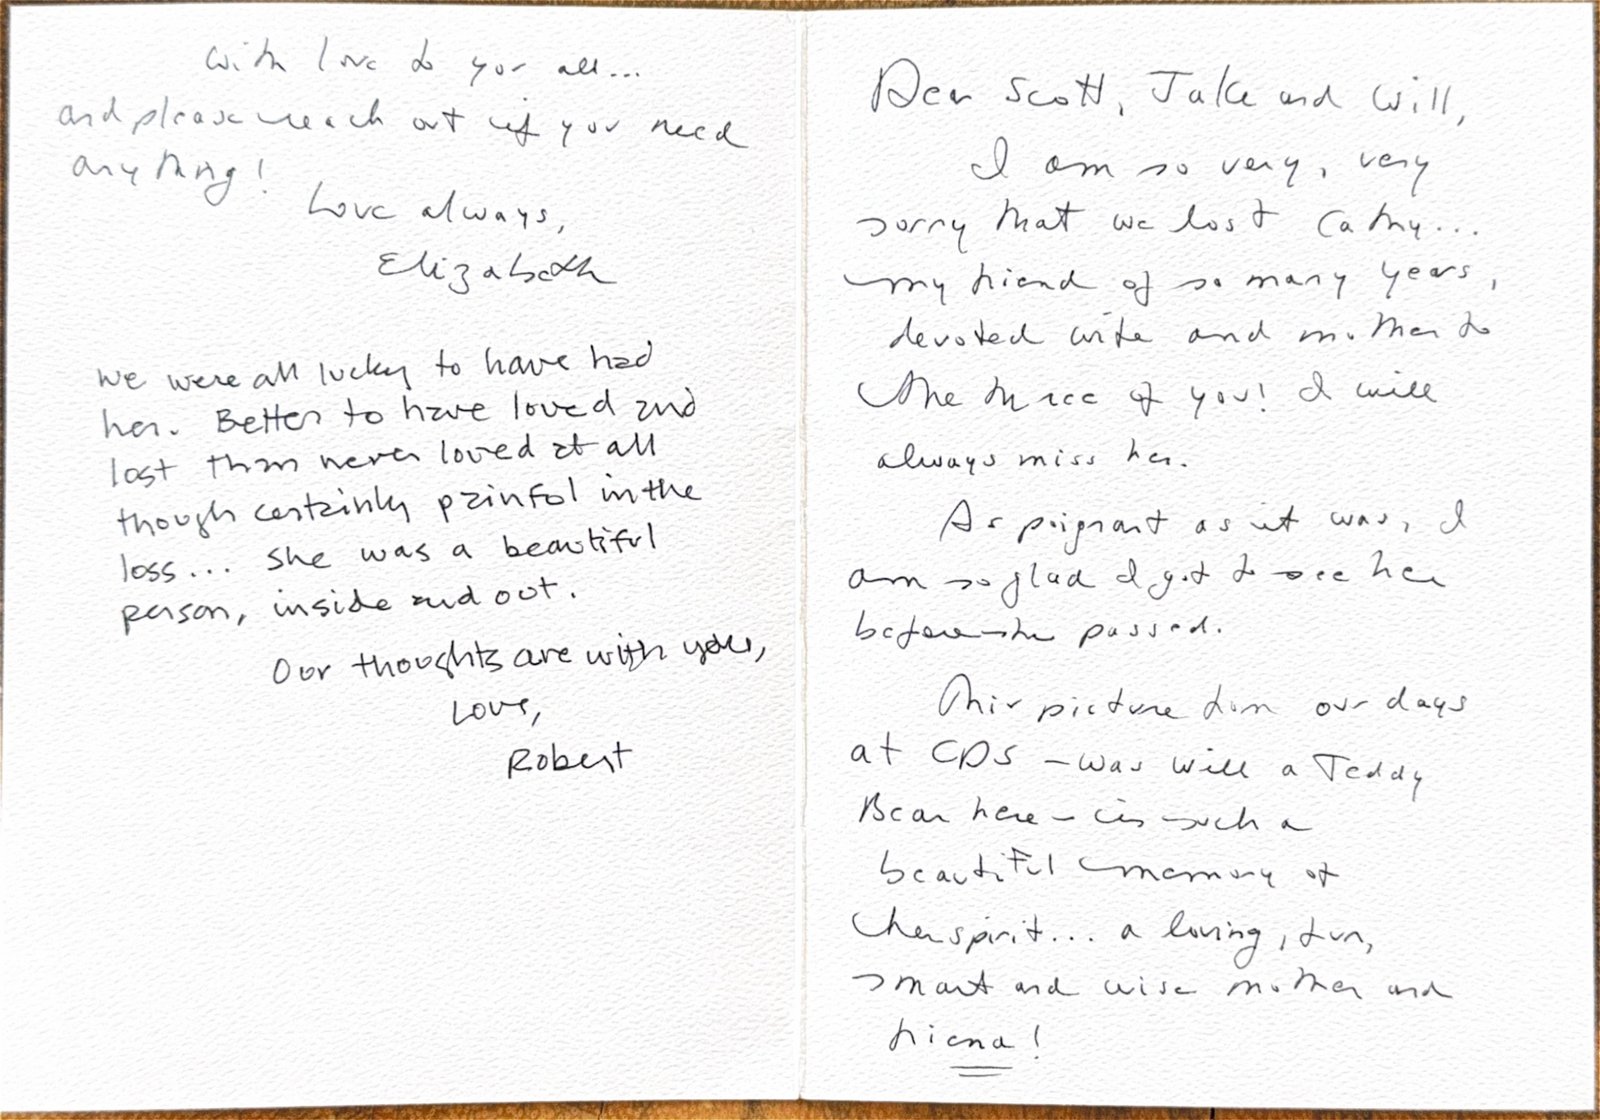 Dear Scott, Jake and Will,
I am so very, very
sorry that we lost Cathy...
my friend of so many years,
devoted wife and mother to
the three of you! I will
always miss her.
As poignant as it was, I
am so glad I got to see her
before she passed.
This picture from our days
at CDS - was Will a Teddy
Bear here - is such a
beautiful memory of
her spirit... a loving, fun,
smart and wise mother and
friend!
With love to you all...
and please reach out if you need
anything!
Love always,
Elizabeth
We were all lucky to have had
her. Better to have loved and
lost than never loved at all
though certainly painful in the
loss... She was a beautiful
person, inside and out.
Our thoughts are with you,
Love,
Robert